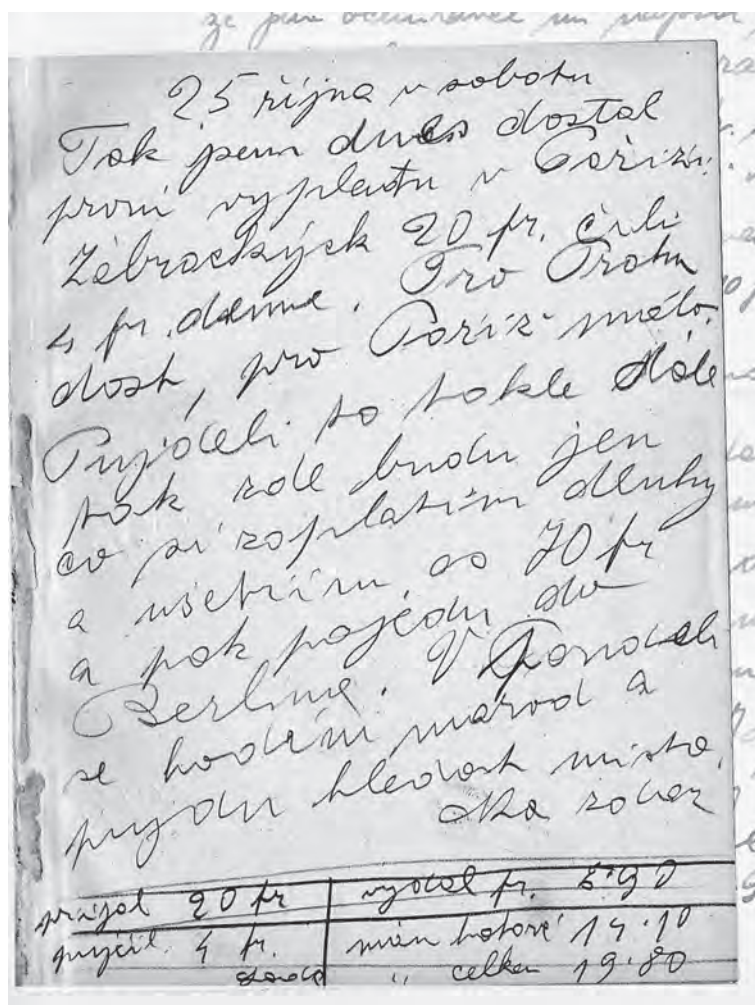 25 října v sobotu
Tak jsem dnes dostal
první vyplatu v Paříži.
Žebrackých 20 fr. čili
4 fr. denně. Pro Prahu
dost, pro Paříž málo.
Pujdeli to takle dále
tak zde budu jen
co si zaplatím dluhy
a ušetřím as 70 fr
a pak pojedu do
Berlína. V Pondeli
se hodím marod a
pujdu hledat místo.
přijal 20 fr vydal fr. 5.90
pujčil 4 fr. mám hotově 14.10
" celkem 19.80